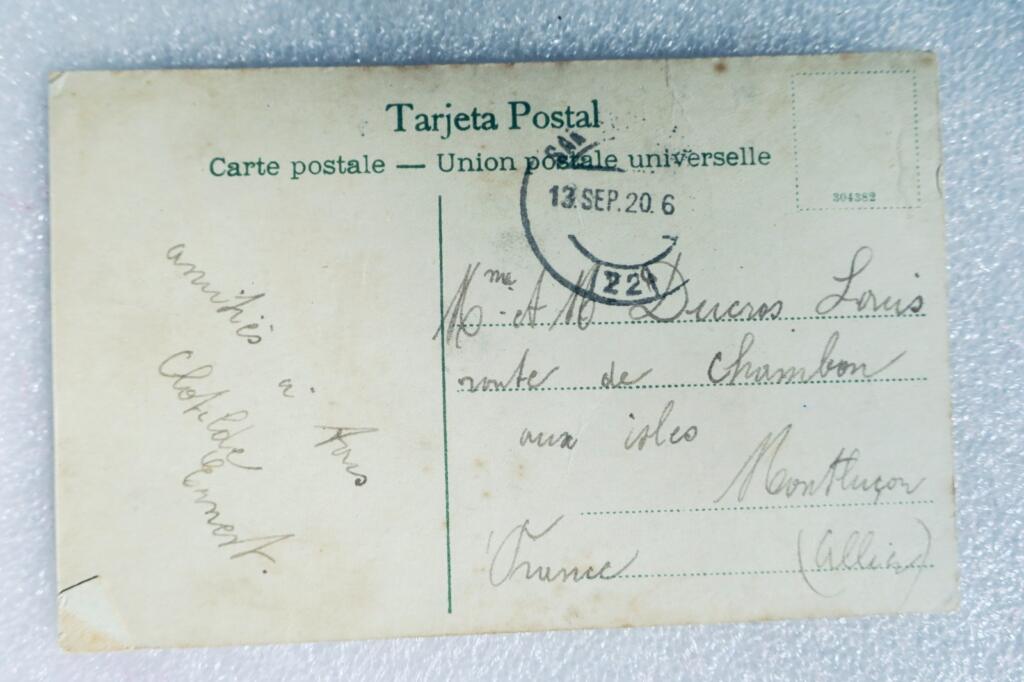 Tarjeta Postal
Carte postale — Union postale universelle
304382
13.SEP.20.6
22
amitiés
à tous
Clotilde
Ernest.
Mme et M Ducros Louis
route de Chambon
aux isles
Montluçon
France (Allier)